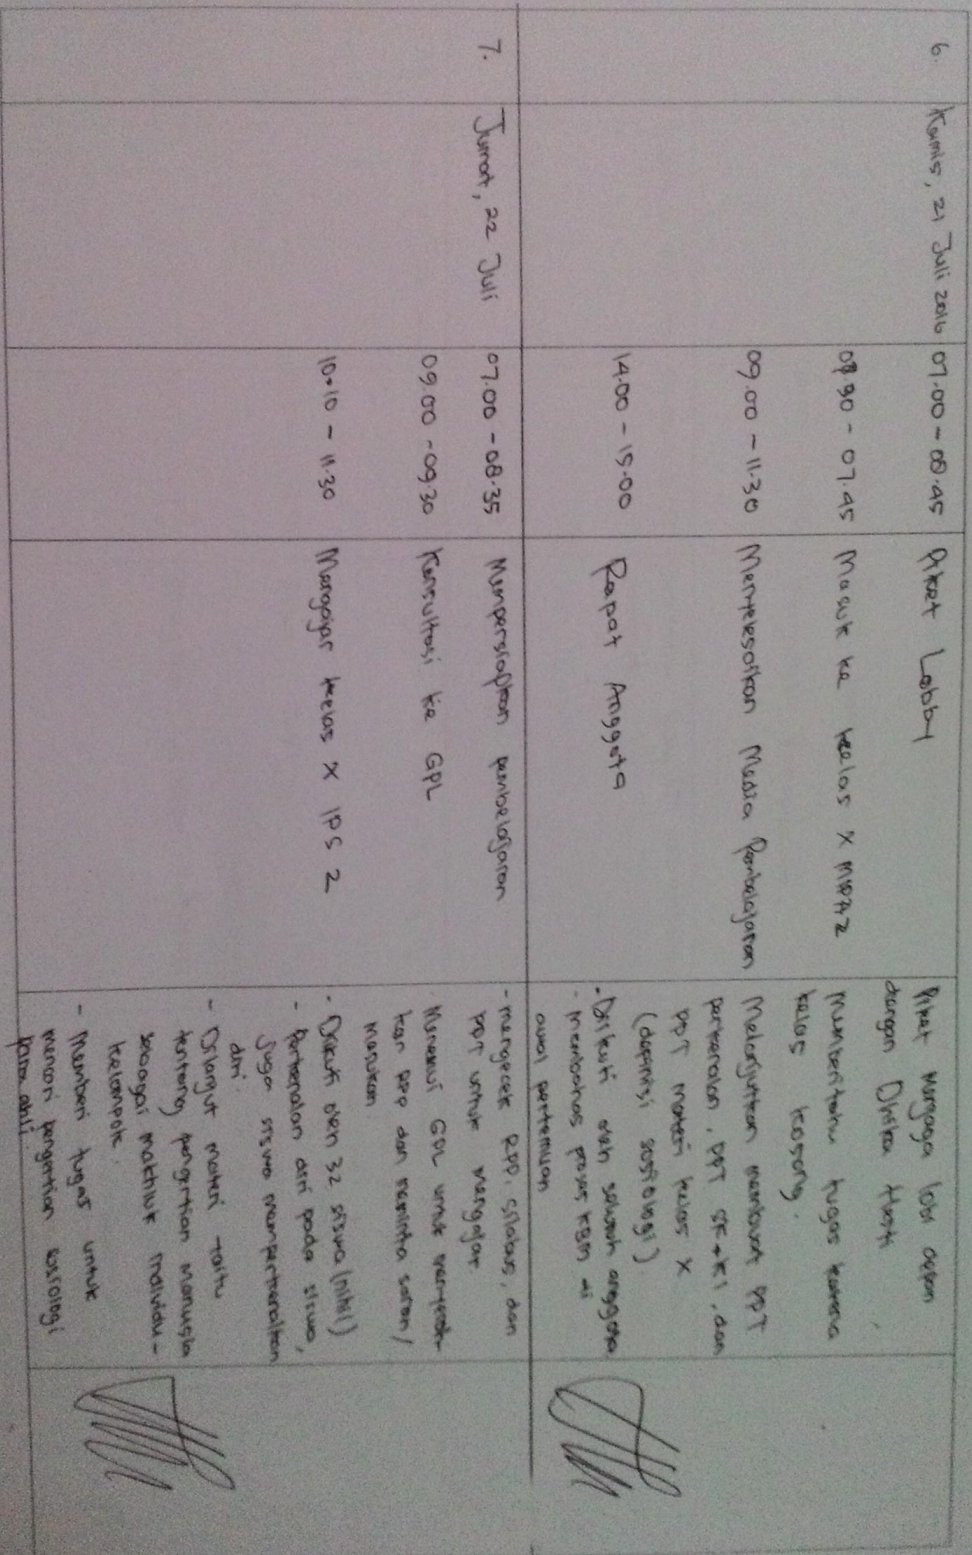 6.
Kamis, 21 Juli 2016
07.00 - 08.45
Piket Lobby
Piket menjaga lobi depan
dengan Dhika Hesti
- 07.45
Masuk ke kelas X MIPA 2
Memberitahu tugas karena
kelas kosong.
09.00 - 11.30
Menyelesaikan Media Pembelajaran
Melanjutkan membuat PPT
perkenalan, PPT SK + KI, dan
PPT materi kelas X
(definisi sosiologi)
14.00 - 15.00
Rapat Anggota
- Diikuti oleh seluruh anggota
- membahas proses KBM di
awal pertemuan
7.
Jumat, 22 Juli
07.00 - 08.35
Mempersiapkan pembelajaran
- mengecek RPP, silabus, dan
PPT untuk mengajar
09.00 - 09.30
Konsultasi ke GPL
Menemui GPL untuk menyerah-
kan RPP dan meminta saran/
masukan
10.10 - 11.30
Mengajar kelas X IPS 2
- Diikuti oleh 32 siswa (nihil)
- Perkenalan diri pada siswa,
juga siswa memperkenalkan
diri
- Dilanjut materi yaitu
tentang pengertian manusia
sebagai makhluk individu -
kelompok.
- Memberi tugas untuk
mencari pengertian sosiologi
para ahli.